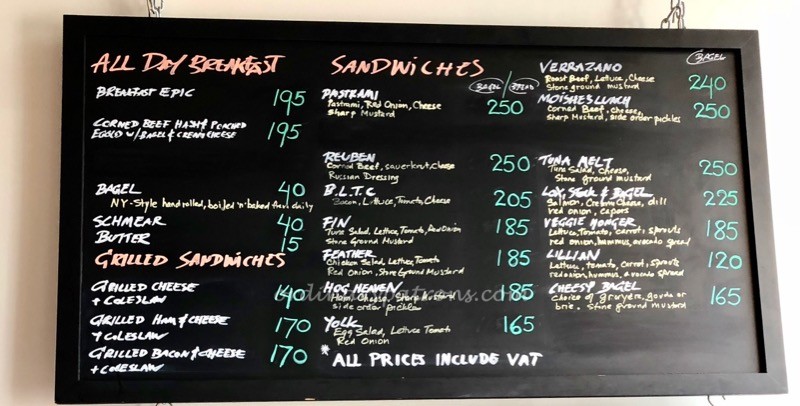 ALL DAY BREAKFAST
BREAKFAST EPIC 195
CORNED BEEF HASH & POACHED
EGGS W/ BAGEL & CREAM CHEESE 195
BAGEL 40
NY-Style hand rolled, boiled 'n' baked fresh daily
SCHMEAR 40
BUTTER 15
GRILLED SANDWICHES
GRILLED CHEESE
+ COLESLAW 140
GRILLED HAM & CHEESE
+ COLESLAW 170
GRILLED BACON & CHEESE
+ COLESLAW 170
SANDWICHES
BAGEL / BREAD
PASTRAMI
Pastrami, Red Onion, Cheese
Sharp Mustard 250
REUBEN
Corned Beef, sauerkraut, cheese
Russian Dressing 250
B.L.T.C
Bacon, Lettuce, Tomato, Cheese 205
FIN
Tuna Salad, Lettuce, Tomato, Red Onion
Stone Ground Mustard 185
FEATHER
Chicken Salad, Lettuce, Tomato
Red Onion, Stone Ground Mustard 185
HOG HEAVEN
Ham, Cheese, Sharp Mustard
side order pickles 185
YOLK
Egg Salad, Lettuce Tomato
Red Onion 165
* ALL PRICES INCLUDE VAT
BAGEL
VERRAZANO
Roast Beef, Lettuce, Cheese
Stone ground mustard 240
MOISHE'S LUNCH
Corned Beef, cheese,
Sharp Mustard, side order pickles 250
TUNA MELT
Tuna Salad, Cheese,
Stone ground mustard 250
LOX, Stock & BAGEL
Salmon, Cream Cheese, dill
red onion, capors 225
VEGGIE MONGER
Lettuce, Tomato, carrot, sprouts
red onion, hummus, avocado spread 185
LILLIAN
Lettuce, tomato, carrot, sprouts
red onion, hummus, avocado spread 120
CHEESY BAGEL
choice of gruyere, gouda or
brie. Stone ground mustard 165